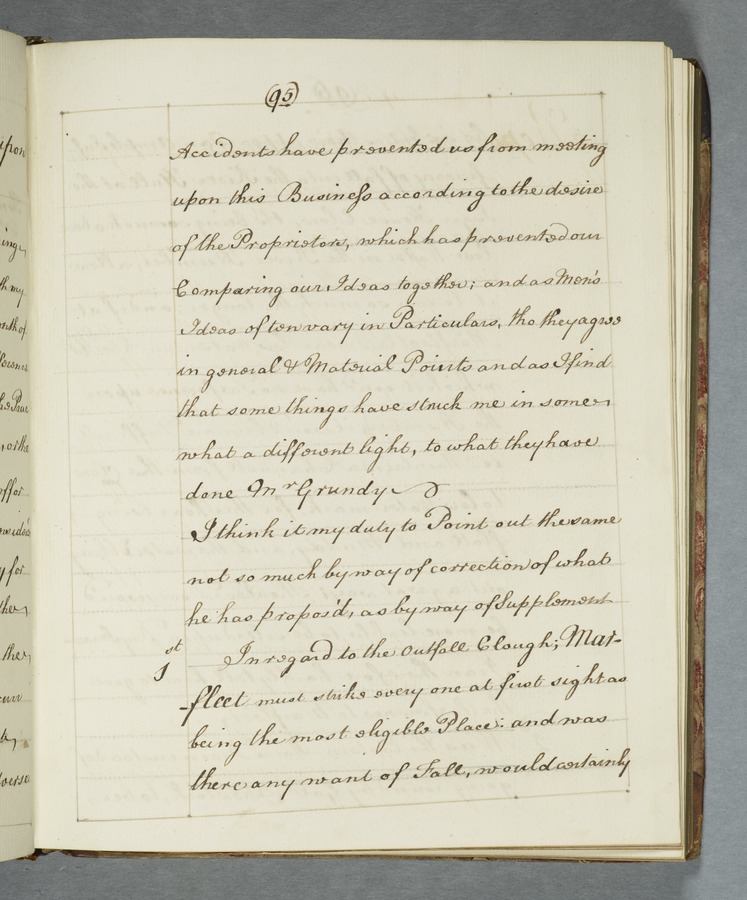 (95)
Accidents have prevented us from meeting
upon this Business according to the desire
of the Proprietors, which has prevented our
Comparing our Ideas together; and as Men's
Ideas often vary in Particulars, tho they agree
in general & Material Points and as I find
that some things have struck me in some
what a different light, to what they have
done Mr Grundy
I think it my duty to Point out the same
not so much by way of correction of what
he has propos'd, as by way of Supplement
1st In regard to the Outfall Clough; Mar-
-fleet must strike every one at first sight as
being the most eligible Place: and was
there any want of Fall, would certainly
upon
ing,
th my
nth of